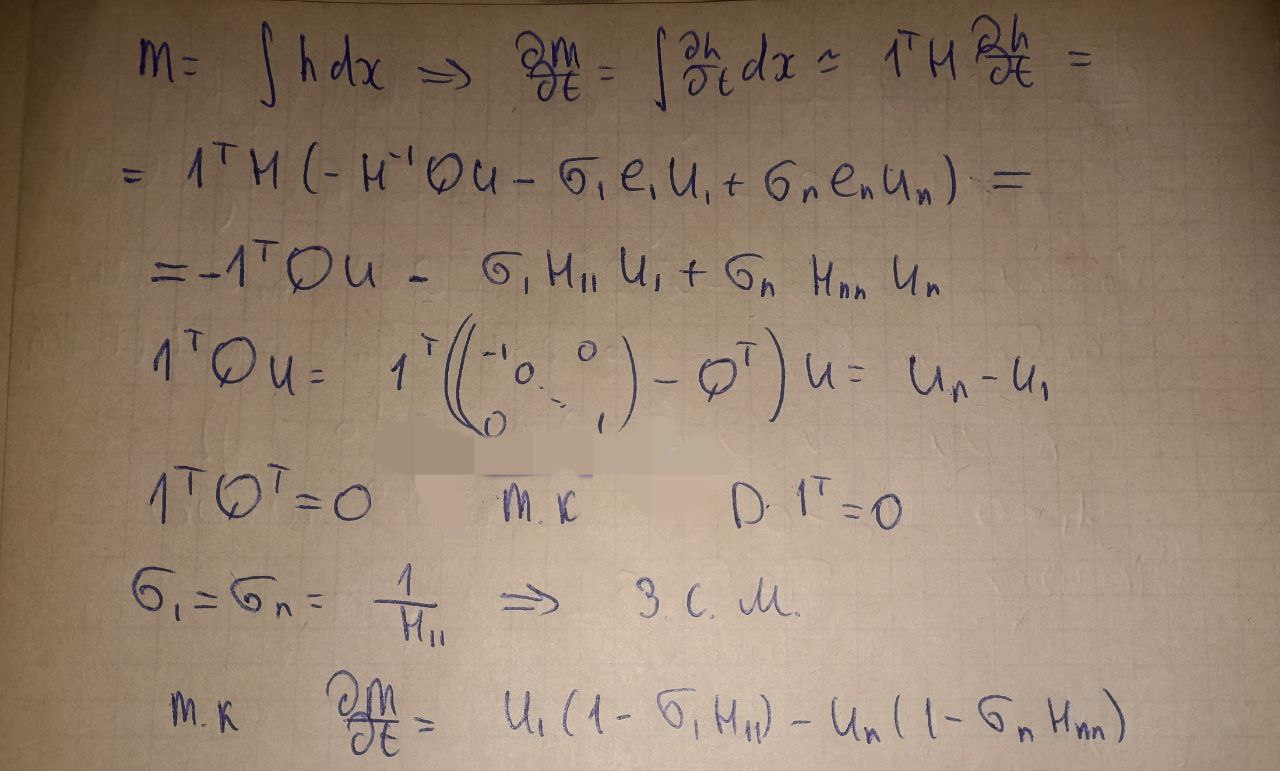 m = ∫ h dx ⇒ ∂m/∂t = ∫ ∂h/∂t dx ≃ 1ᵀ H ∂h/∂t =
= 1ᵀ H (- H⁻¹ Q u - σ₁ e₁ u₁ + σₙ eₙ uₙ) =
= -1ᵀ Q u - σ₁ H₁₁ u₁ + σₙ Hₙₙ uₙ
1ᵀ Q u = 1ᵀ (( -1 0 0 ⋱ 0 1 ) - Qᵀ) u = uₙ - u₁
1ᵀ Qᵀ = 0 т.к D · 1ᵀ = 0
σ₁ = σₙ = 1/H₁₁ ⇒ З С. М.
т.к ∂m/∂t = u₁ (1 - σ₁ H₁₁) - uₙ (1 - σₙ Hₙₙ)